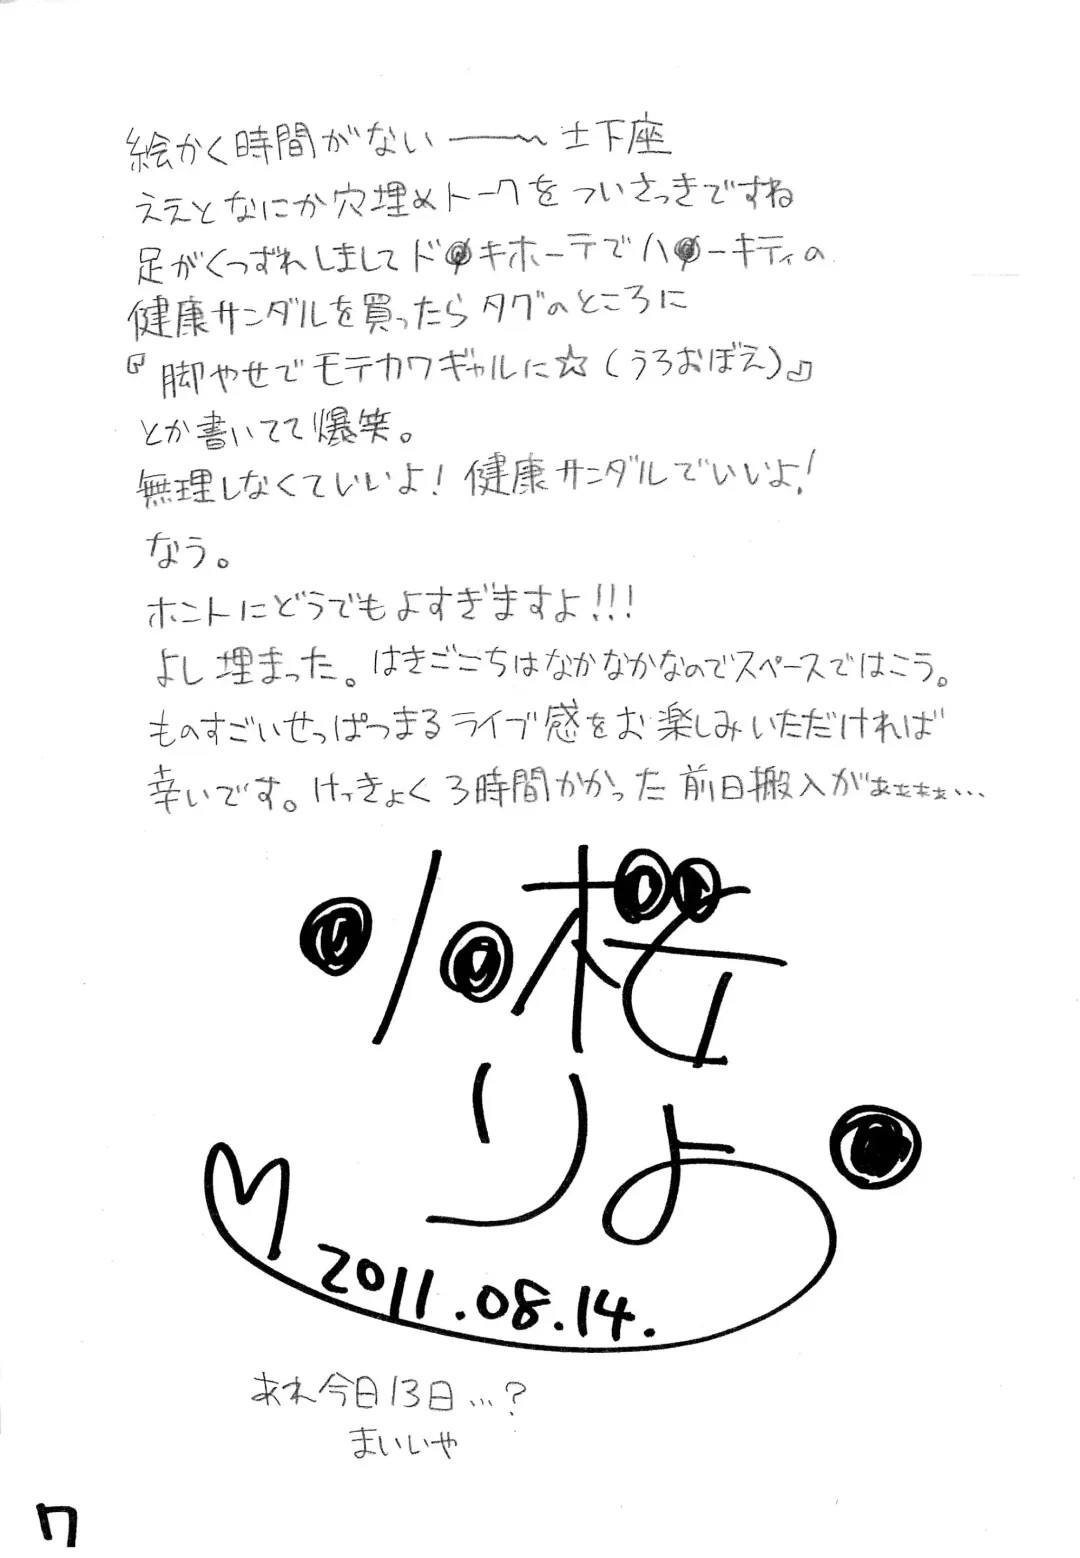 絵かく時間がない――～土下座
ええとなにか穴埋めトークを ついさっきですね
足がくつずれしましてド●キホーテでハ●ーキティの
健康サンダルを買ったら タグのところに
『脚やせでモテカワギャルに☆(うろおぼえ)』
とか書いてて爆笑。
無理しなくていいよ! 健康サンダルでいいよ!
なう。
ホントにどうでもよすぎますよ!!!
よし埋まった。はきごこちはなかなかなのでスペースではこう。
ものすごいせっぱつまるライブ感をお楽しみいただければ
幸いです。けっきょく3時間かかった前日搬入がぁぁぁぁ…
小桜
りょ
2011.08.14.
あれ今日13日…?
まいいや
7